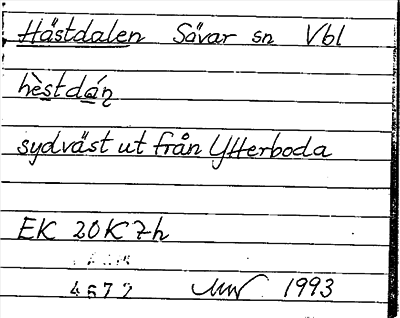 Hästdalen Sävar sn Vbl
hèstdáṇ
sydväst ut från Ytterboda
EK 20K7h
4672 1993